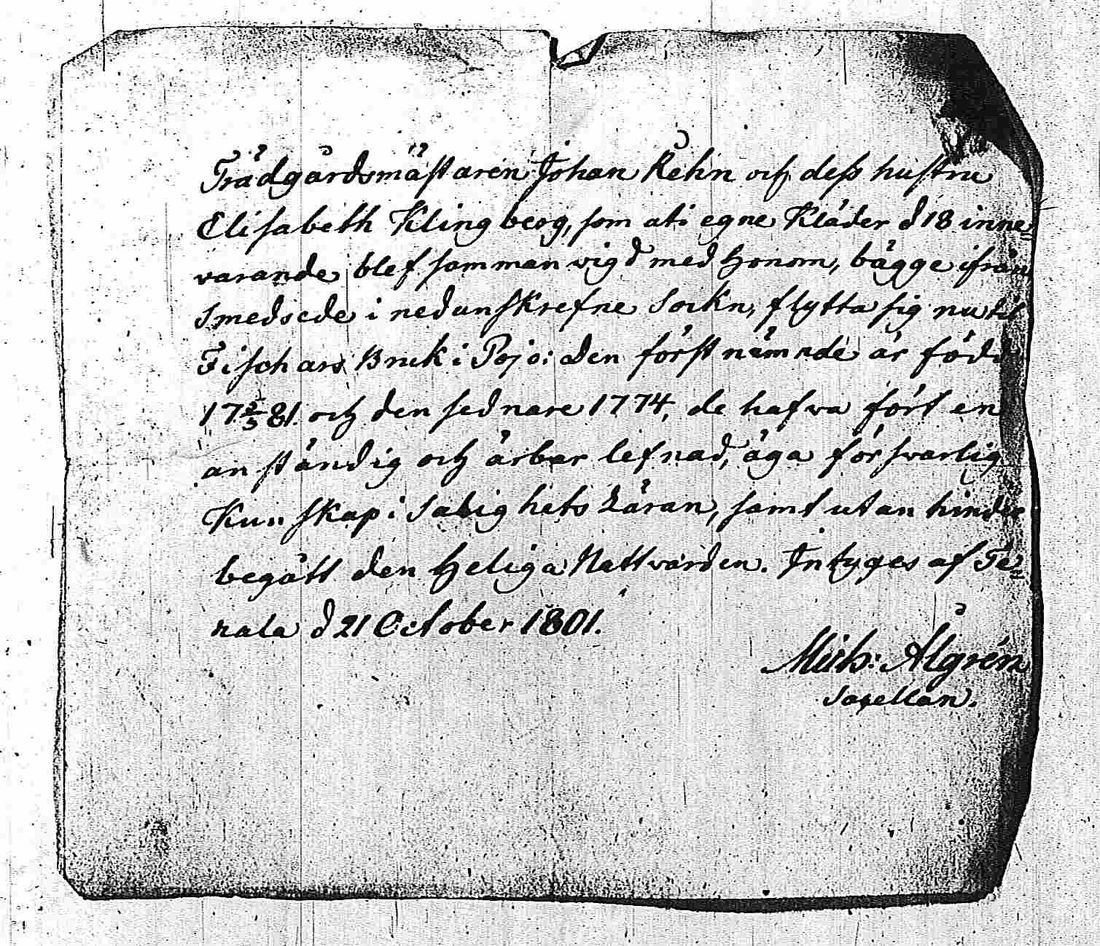 Trädgårdsmästaren Johan Rehn och dess hustru
Elisabeth Klingberg, som uti egne Kläder d 18 inne=
varande blef sammanvigd med Honom, bägge ifrån
Smedsede i nedanskrefne Sockn, flytta sig nu til
Fischars Bruk i Pojo: den först nämnde är född
17 2/5 81. och den sednare 1774, de hafva fört en
anständig och ärbar lefnad, äga försvarlig
Kunskap i Salighets Läran, samt utan hinder
begått den Heliga Nattvarden. Intyges af Te=
nala d 21 October 1801.
Mich: Ålgrén
Sacellan.